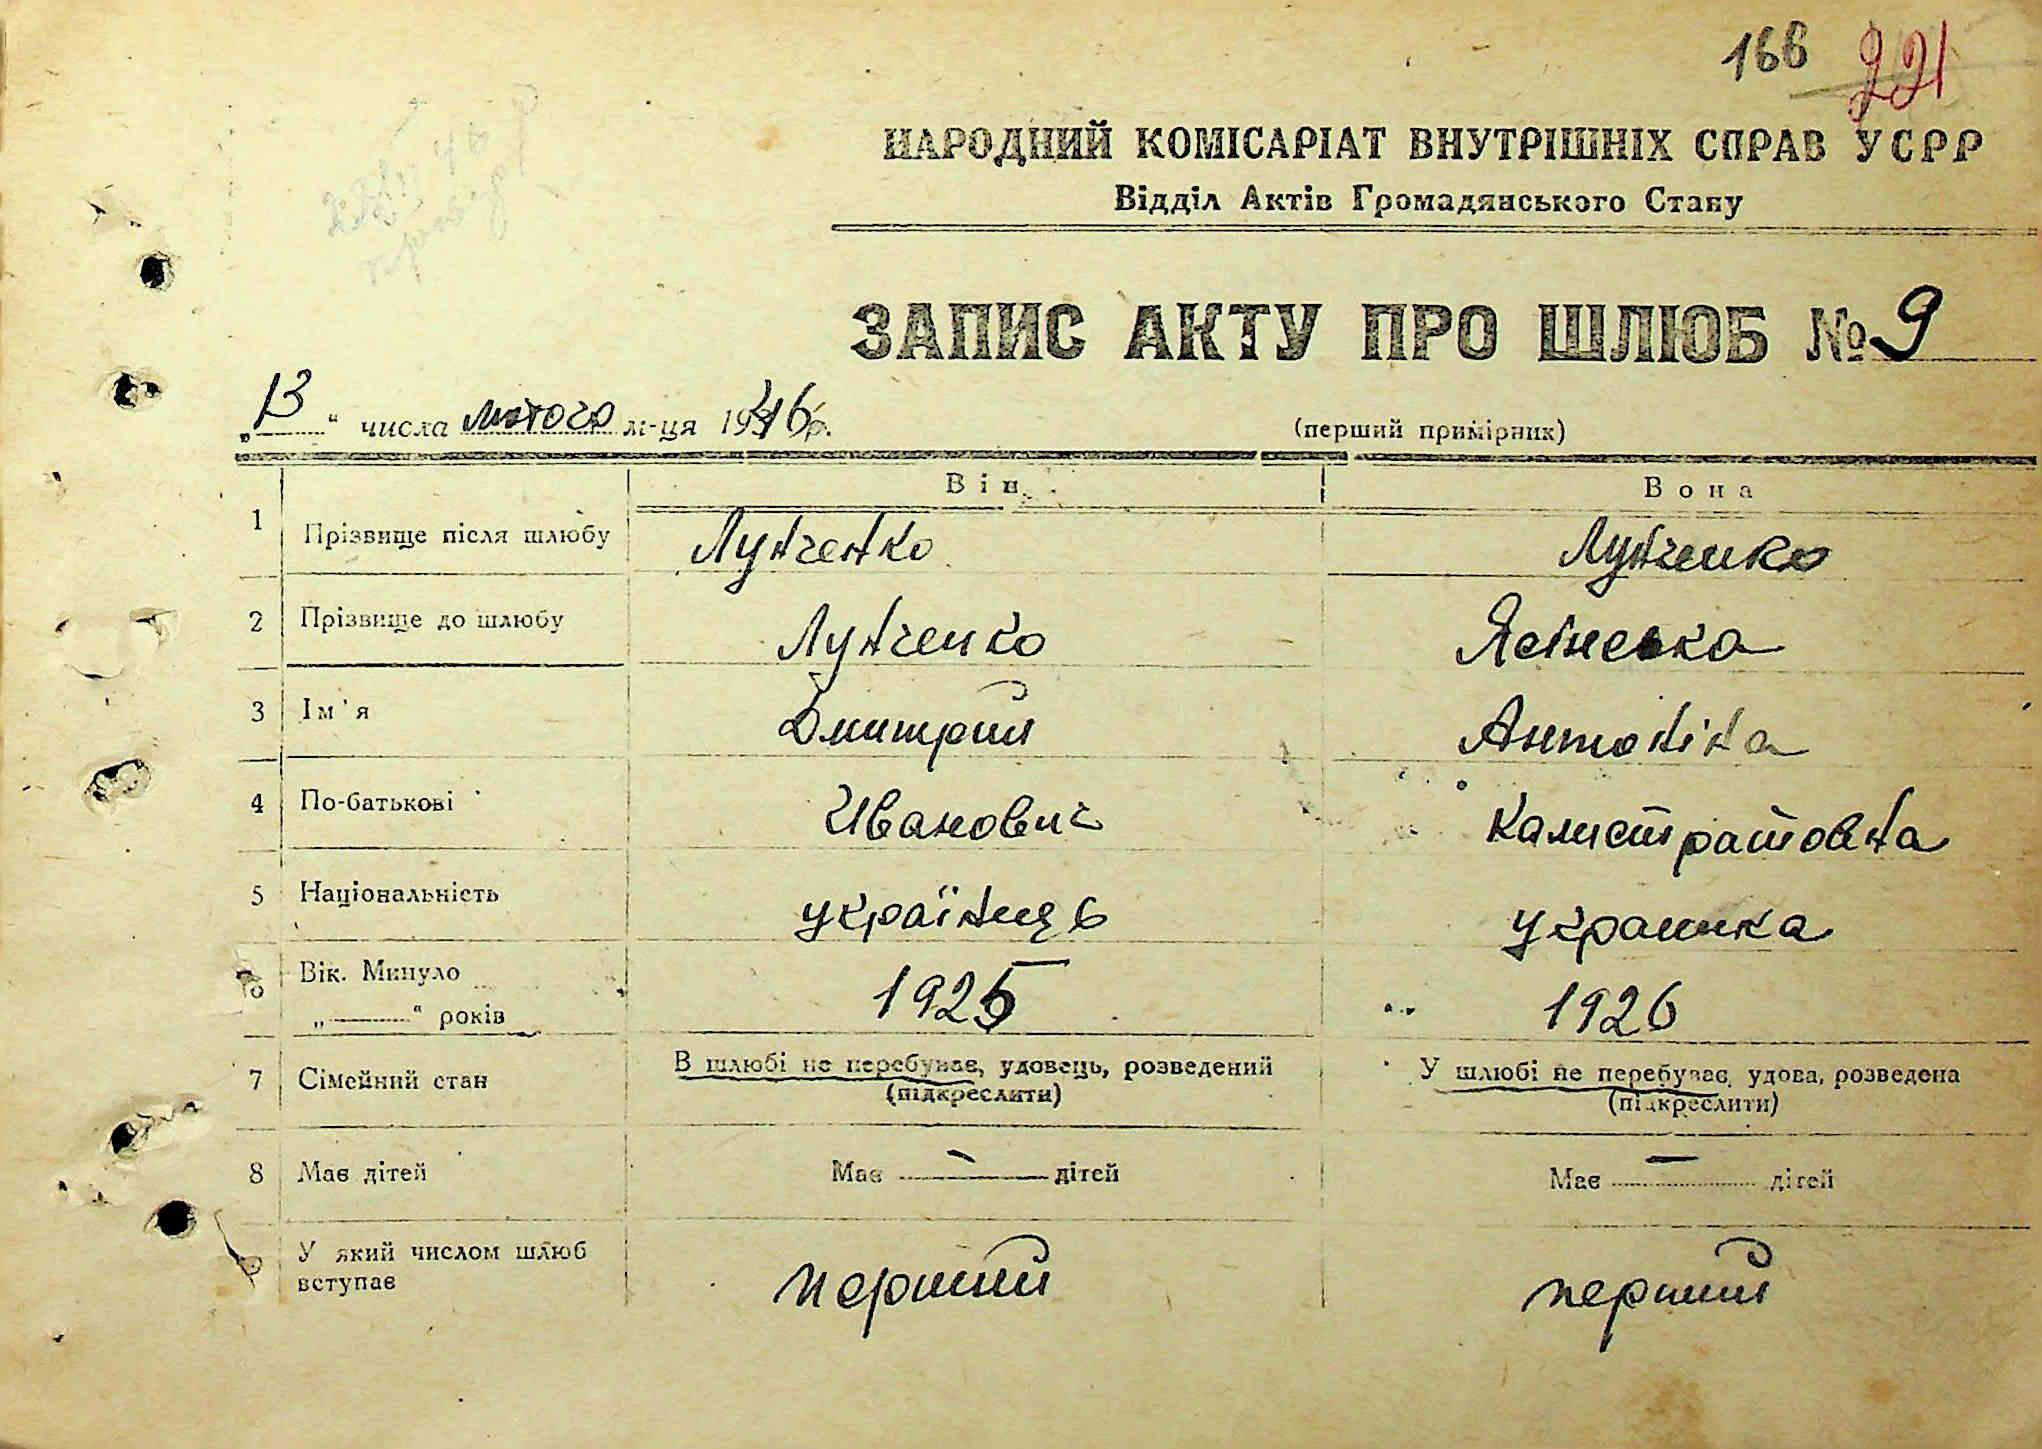 166 221
НАРОДНИЙ КОМІСАРІАТ ВНУТРІШНІХ СПРАВ УСРР
Відділ Актів Громадянського Стану
ЗАПИС АКТУ ПРО ШЛЮБ № 9
„13“ числа лютого м-ця 1946 р.
(перший примірник)
Він Вона
1 Прізвище після шлюбу Лунченко Лунченко
2 Прізвище до шлюбу Лунченко Ясінська
3 Ім'я Дмитрий Антоніна
4 По-батькові Иванович Калистратовна
5 Національність українець украинка
6 Вік. Минуло 1925 1926
„ “ років
7 Сімейний стан В шлюбі не перебував, удовець, розведений У шлюбі не перебуває, удова, розведена
(підкреслити) (підкреслити)
8 Має дітей Має — дітей Має — дітей
9 У який числом шлюб вступає перший перший